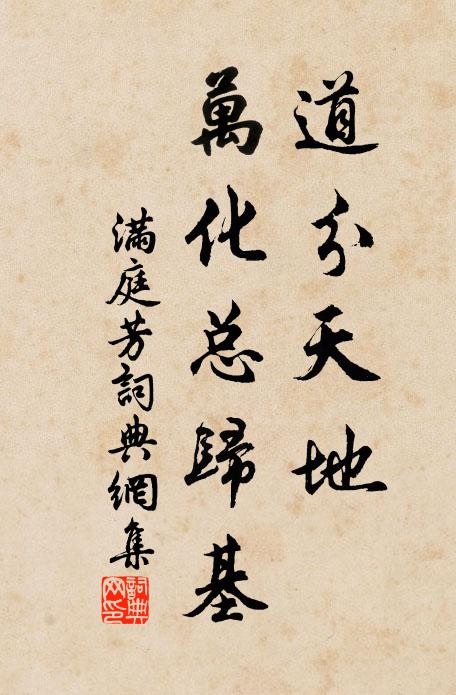 道分天地
萬化总歸基
滿庭芳詞典網集
詞典
网印